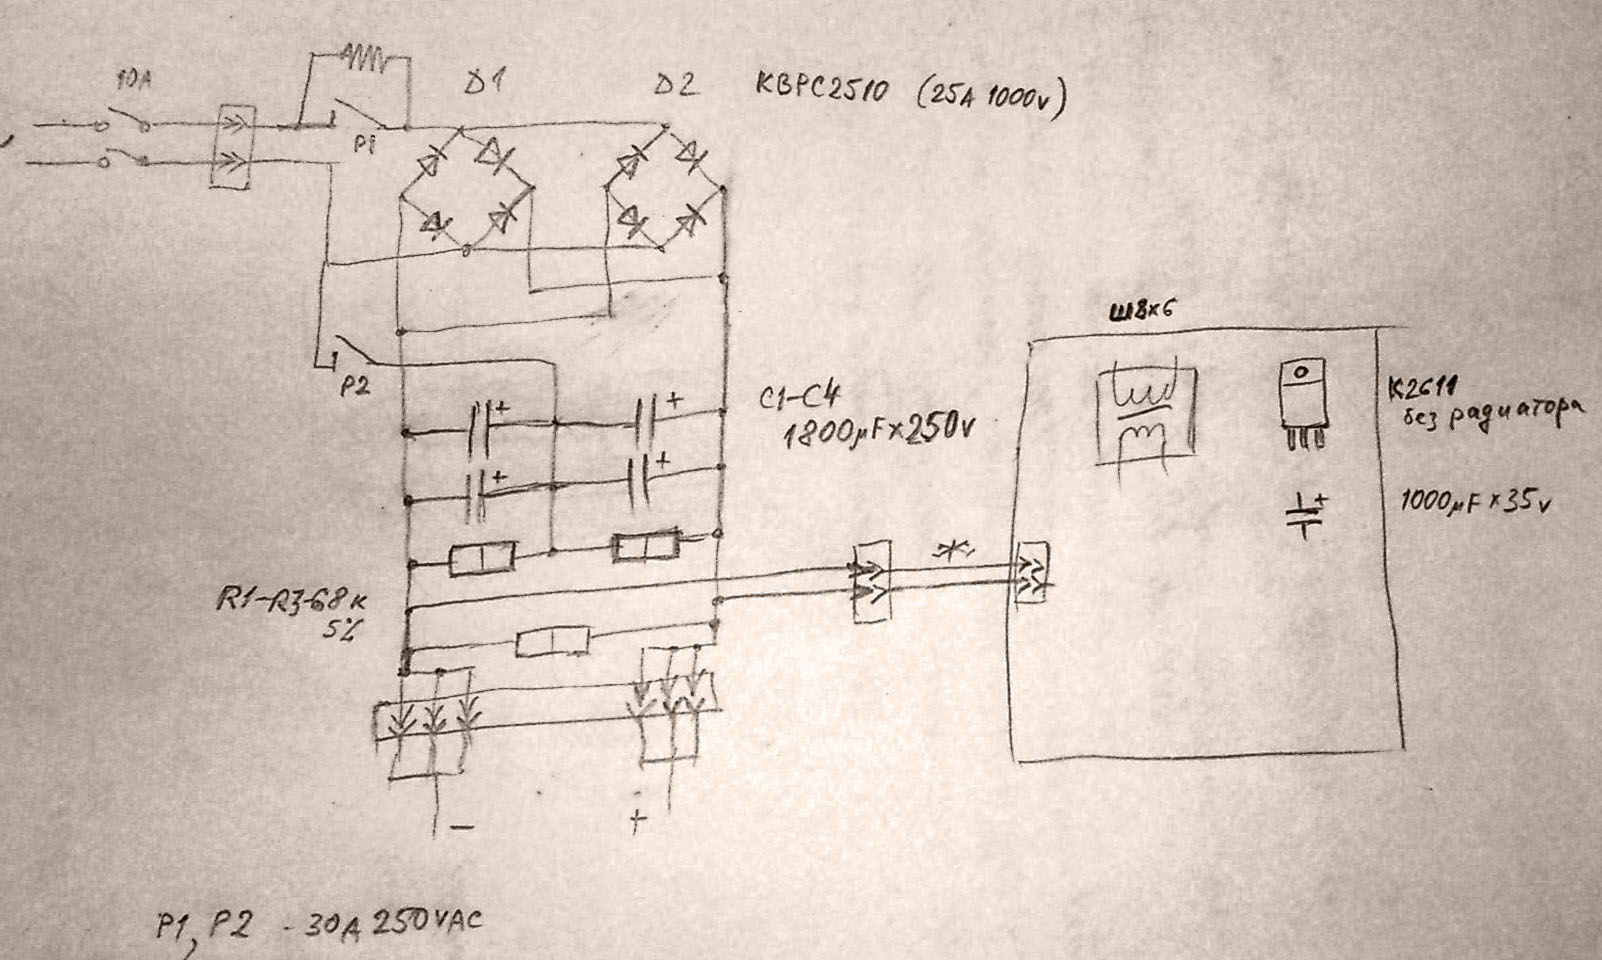 10A
D1
D2
KBPC2510 (25A 1000v)
P1
Ш8х6
P2
C1-C4
1800µF×250v
K2611
без радиатора
1000µF×35v
R1-R3-68к
5%
*
-
+
P1, P2 - 30A 250VAC